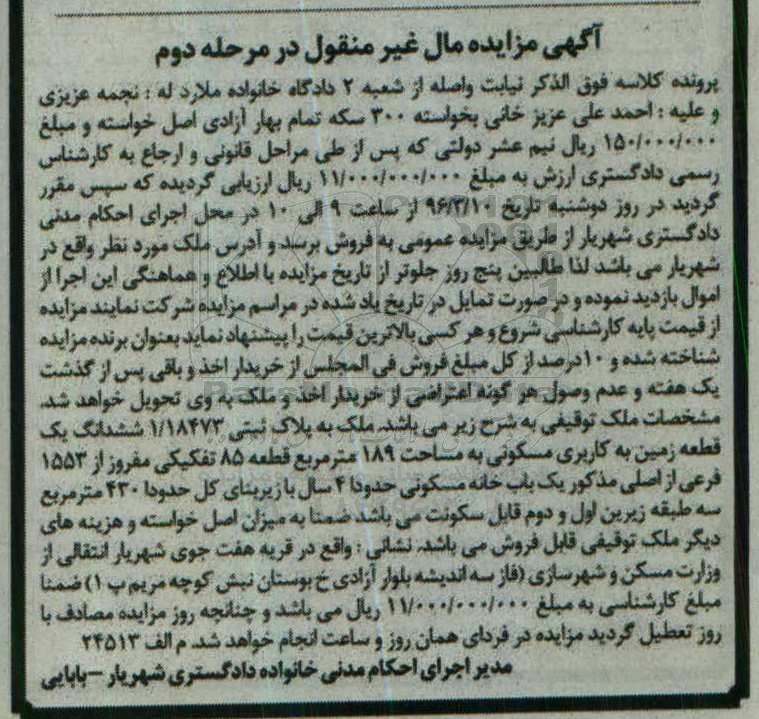 آگهی مزایده مال غیر منقول در مرحله دوم
پرونده کلاسه فوق الذکر نیابت واصله از شعبه ۲ دادگاه خانواده ملارد له : نجمه عزیزی
و علیه : احمد علی عزیز خانی بخواسته ۳۰۰ سکه تمام بهار آزادی اصل خواسته و مبلغ
۱۵۰/۰۰۰/۰۰۰ ریال نیم عشر دولتی که پس از طی مراحل قانونی و ارجاع به کارشناس
رسمی دادگستری ارزش به مبلغ ۱۱/۰۰۰/۰۰۰/۰۰۰ ریال ارزیابی گردیده که سپس مقرر
گردید در روز دوشنبه تاریخ ۹۶/۳/۱۰ از ساعت ۹ الی ۱۰ در محل اجرای احکام مدنی
دادگستری شهریار از طریق مزایده عمومی به فروش برسد و آدرس ملک مورد نظر واقع در
شهریار می باشد لذا طالبین پنج روز جلوتر از تاریخ مزایده با اطلاع و هماهنگی این اجرا از
اموال بازدید نموده و در صورت تمایل در تاریخ یاد شده در مراسم مزایده شرکت نمایند مزایده
از قیمت پایه کارشناسی شروع و هر کسی بالاترین قیمت را پیشنهاد نماید بعنوان برنده مزایده
شناخته شده و ۱۰درصد از کل مبلغ فروش فی المجلس از خریدار اخذ و باقی پس از گذشت
یک هفته و عدم وصول هر گونه اعتراضی از خریدار اخذ و ملک به وی تحویل خواهد شد.
مشخصات ملک توقیفی به شرح زیر می باشد. ملک به پلاک ثبتی ۱/۱۸۴۷۳ ششدانگ یک
قطعه زمین به کاربری مسکونی به مساحت ۱۸۹ مترمربع قطعه ۸۵ تفکیکی مفروز از ۱۵۵۳
فرعی از اصلی مذکور یک باب خانه مسکونی حدودا ۴ سال با زیربنای کل حدودا ۴۳۰ مترمربع
سه طبقه زیرین اول و دوم قابل سکونت می باشد ضمنا به میزان اصل خواسته و هزینه های
دیگر ملک توقیفی قابل فروش می باشد. نشانی : واقع در قریه هفت جوی شهریار انتقالی از
وزارت مسکن و شهرسازی (فاز سه اندیشه بلوار آزادی خ بوستان نبش کوچه مریم پ ۱) ضمنا
مبلغ کارشناسی به مبلغ ۱۱/۰۰۰/۰۰۰/۰۰۰ ریال می باشد و چنانچه روز مزایده مصادف با
روز تعطیل گردید مزایده در فردای همان روز و ساعت انجام خواهد شد. م الف ۲۴۵۱۳
مدیر اجرای احکام مدنی خانواده دادگستری شهریار –بابایی